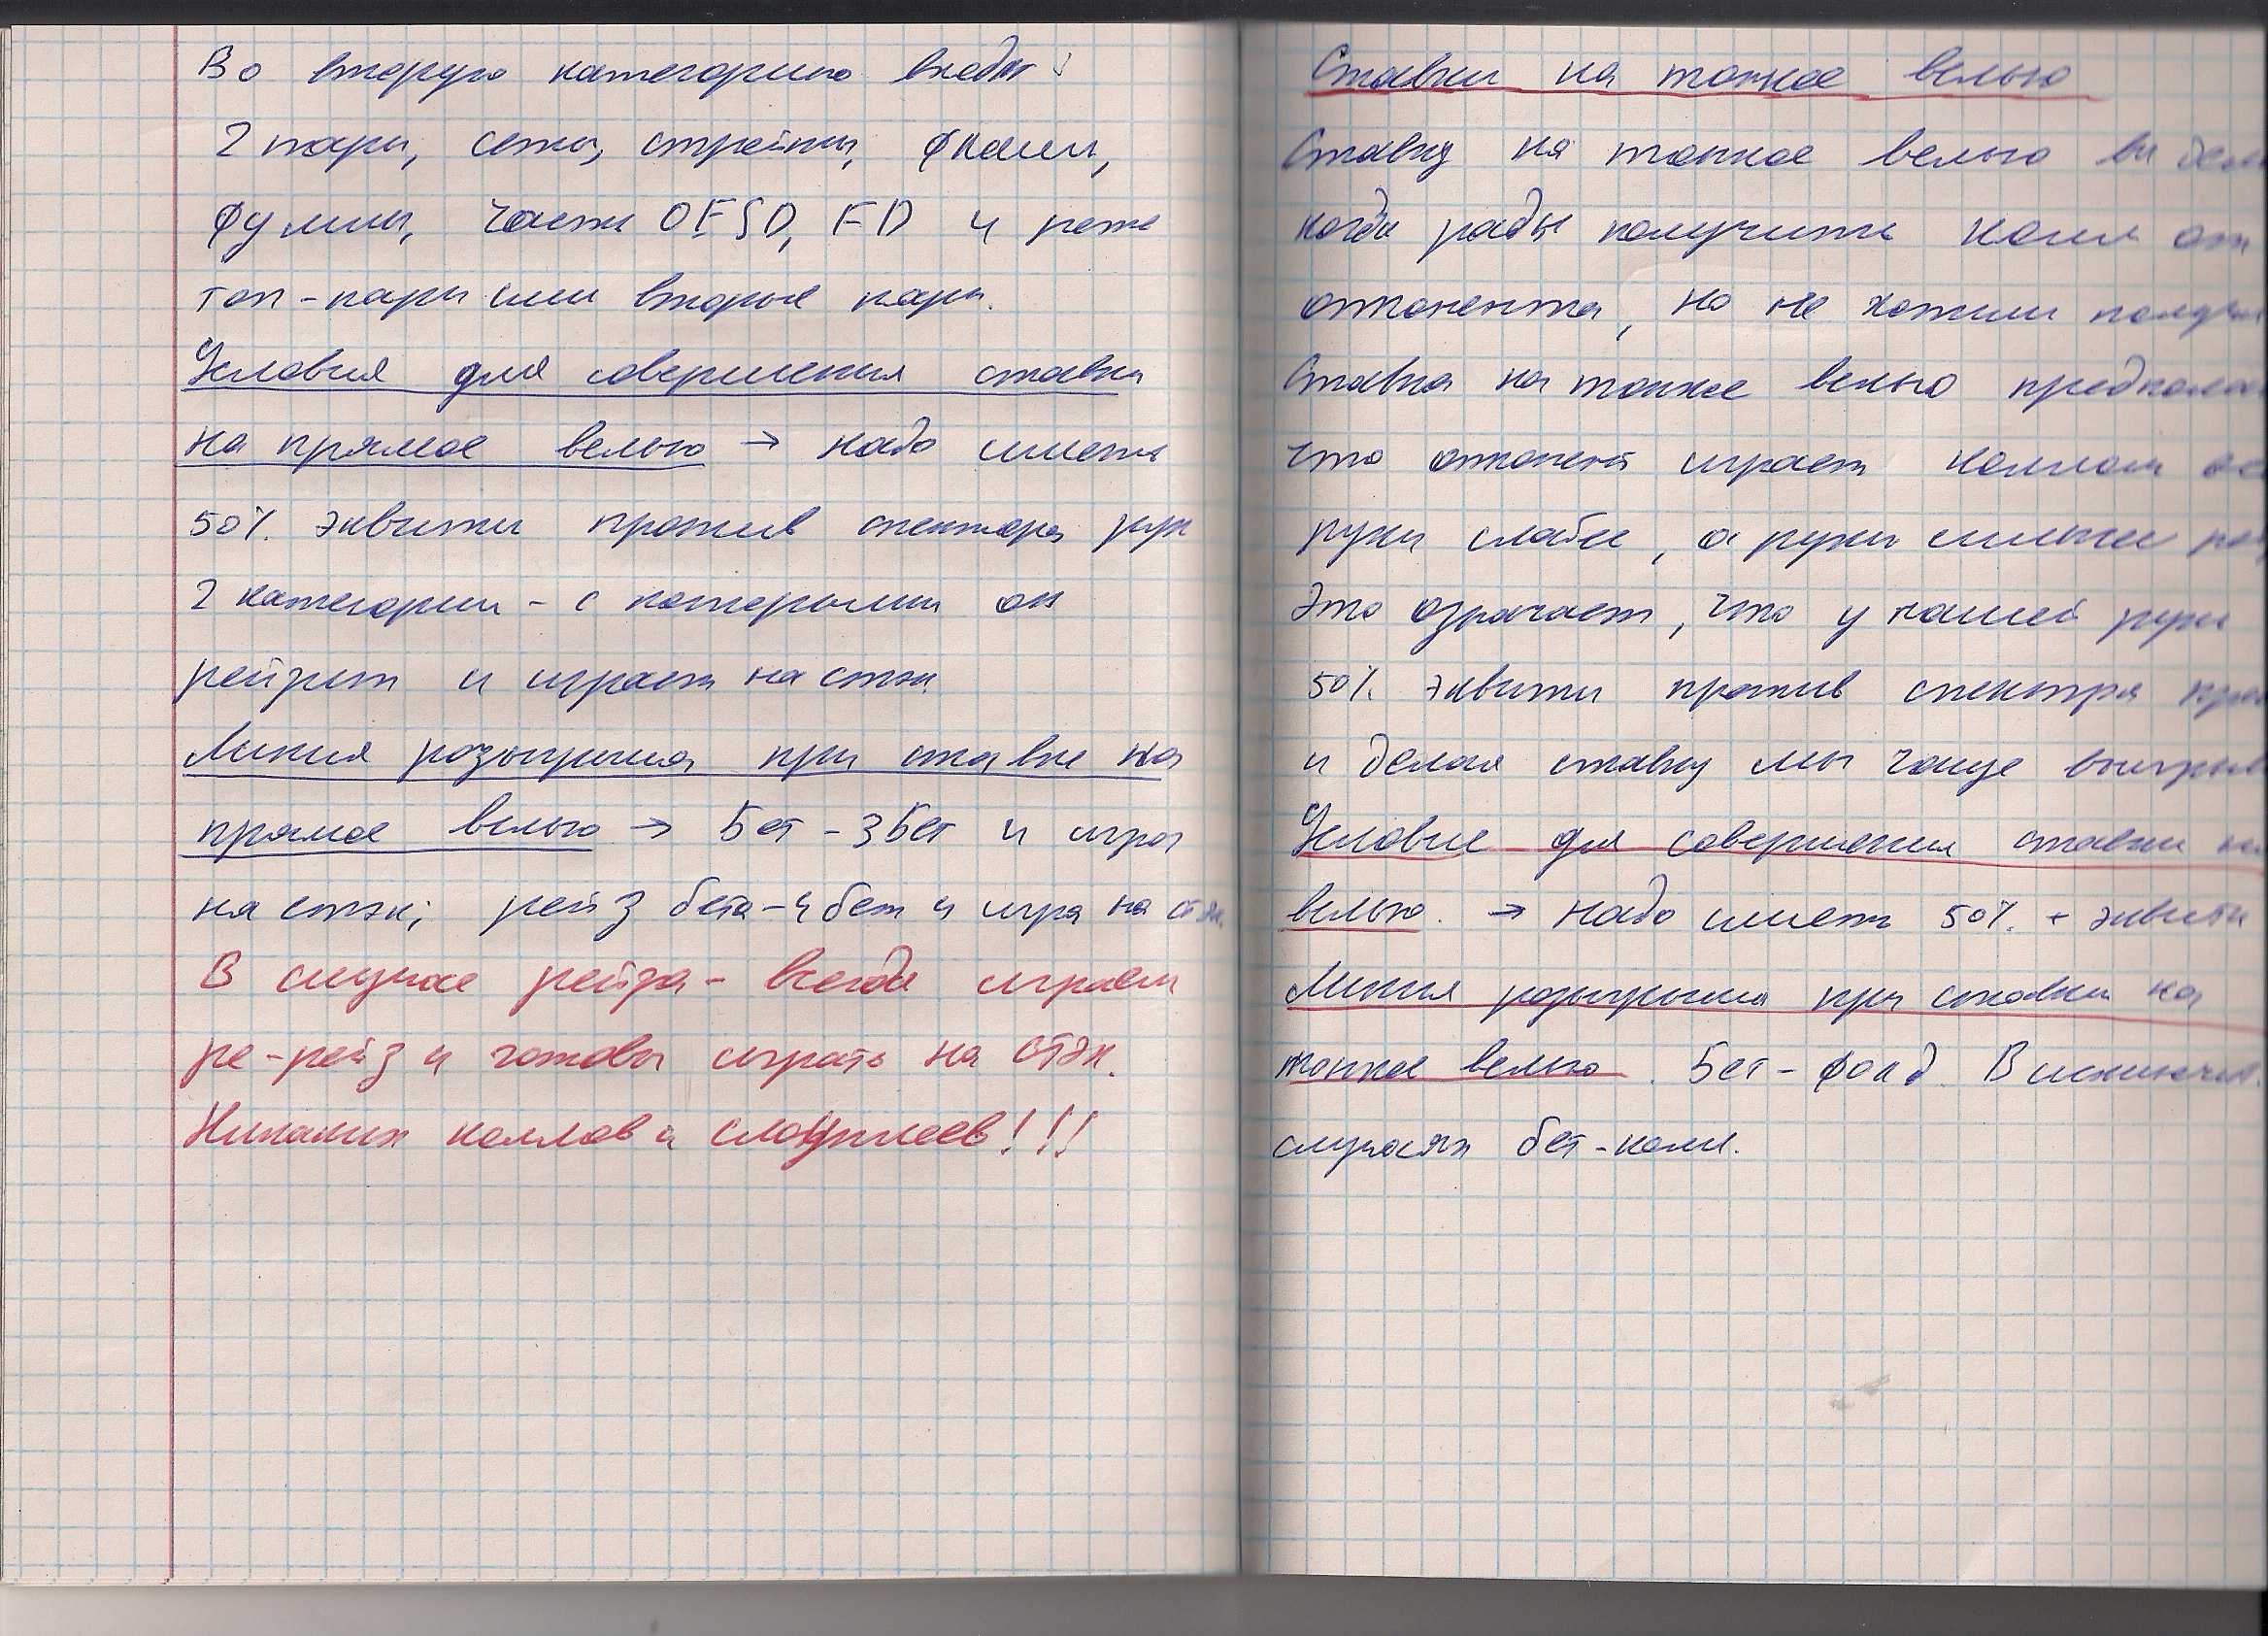 Во вторую категорию входят
2 пары, сеты, стрейты, флеши,
фулы, части OESD, FD и реже
топ-пары или вторые пары.
Условия для совершения ставки
на прямое велью → надо иметь
50% эквити против спектра рук
2 категории - с которыми он
рейзит и играет на стэк.
Линия розыгрыша при ставке на
прямое велью → Бет - 3бет и игра
на стэк; рейз бета - 4бет и игра на стэк.
В случае рейза - всегда играем
ре-рейз и готовы играть на стэк.
Никаких коллов и слоуплеев!!!
Ставки на тонкое велью
Ставку на тонкое велью вы
когда рады получить колл от
оппонента, но не хотим
Ставка на тонкое велью
что оппонент играет коллом
руки слабее, а руки сильнее
Это означает, что у нашей руки
50% эквити против спектра
и делая ставку мы чаще
Условие для совершения ставки
велью. → надо иметь 50% + эквити
Линия розыгрыша при ставки на
тонкое велью. Бет - фолд. В
случаях бет-колл.